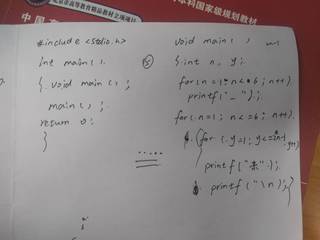 北京市高等教育精品教材立项项目
本科国家级规划教材
#include <stdio.h>
int main()
{ void main();
main();
return 0;
}
void main()
{ int n, y;
for(n=1; n<=6; n++)
printf("_");
for(n=1; n<=6; n++)
{for(y=1; y<=2n-1; y++)
printf("*");
printf("\n");}